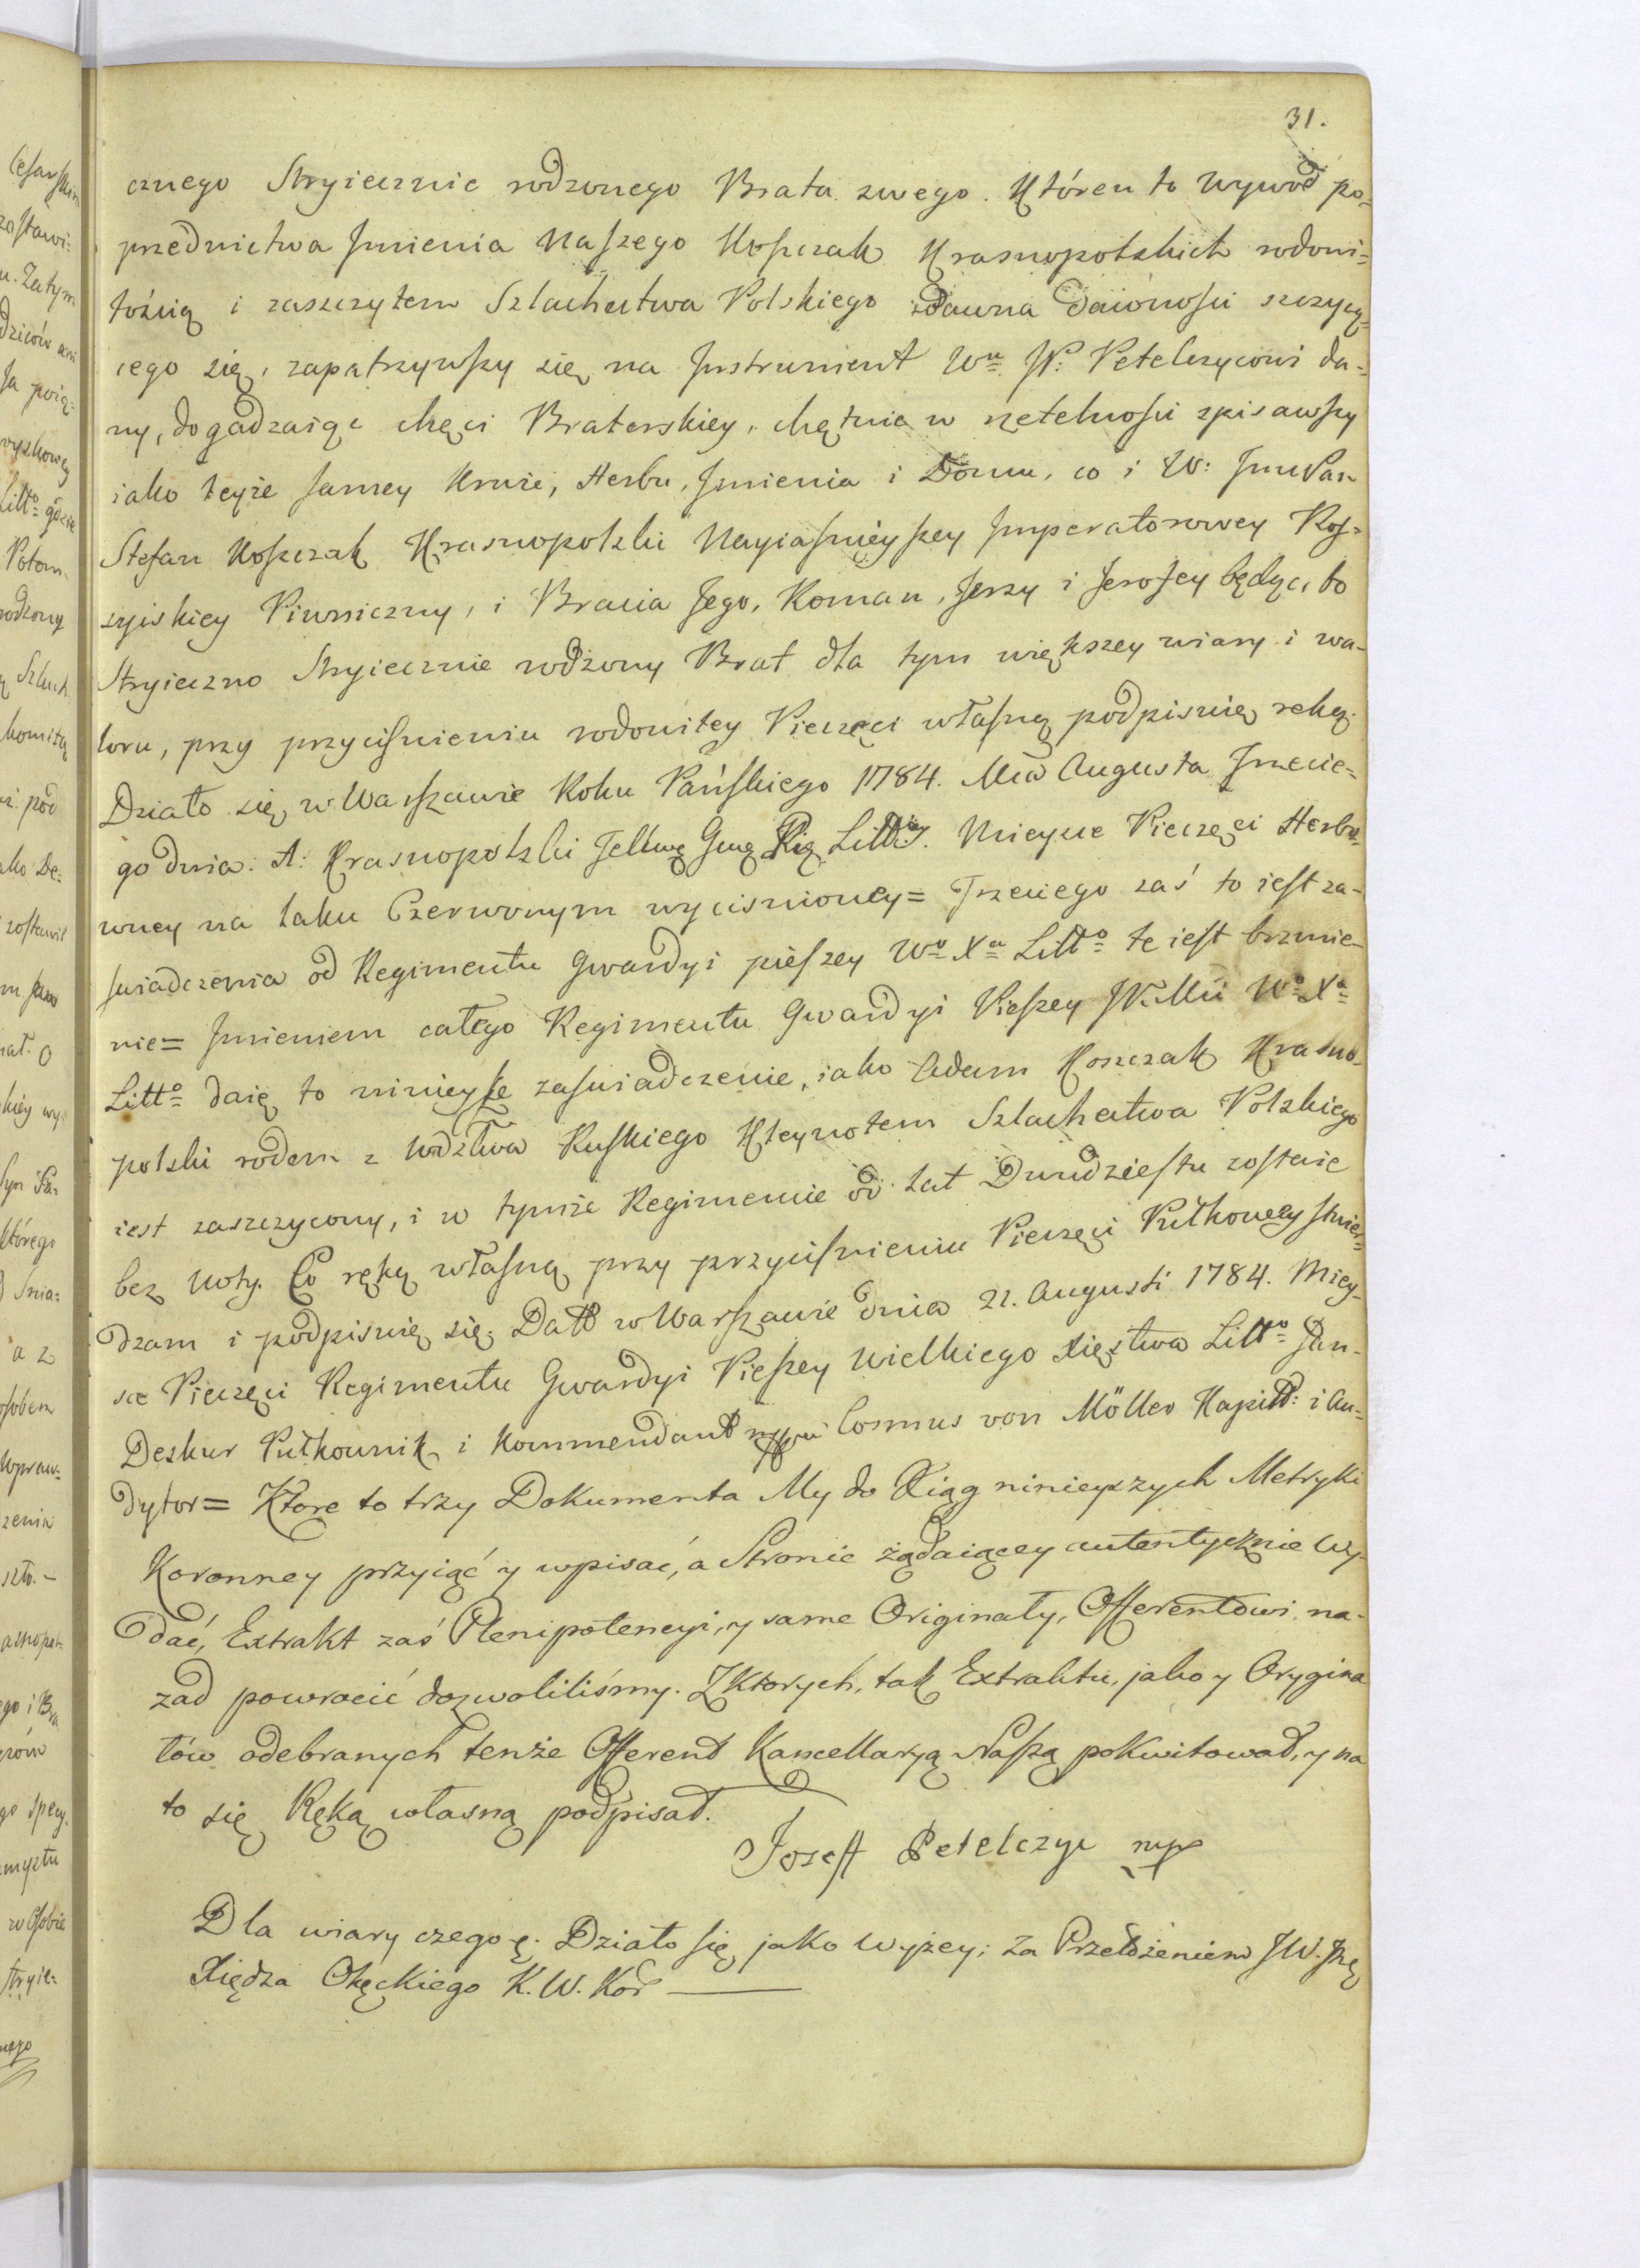 31.
cznego Stryiecznie rodzonego Brata swego. Któren to wywod po=
przednictwa Jmienia Naszego Koszczak Krasnopolskich rodowi=
tością i zaszczytem Szlachectwa Polskiego zdawna dawności szczycą=
cego się, zapatrzywszy się na Jnstrument Wu JP: Petelczycowi da=
ny, dogadzaiąc chęci Braterskiey, chętnie w rzetelności spisawszy
iako teyże samey Krwie, Herbu, Jmienia i Domu, co i W: JmcPan
Stefan Koszczak Krasnopolski Nayiaśnieyszey Jmperatorowey Ros=
syiskiey Piwniczny, i Bracia Jego, Roman, Jerzy i Jerofey będąc, bo
Stryieczno Stryiecznie rodzony Brat dla tym większey wiary i wa=
loru, przy przyciśnieniu rodowitey Pieczęci własną podpisuię ręką.
Działo się w Warszawie Roku Pańskiego 1784. Mca Augusta Trzecie=
go dnia: A: Krasnopolski Litt. Mieysce Pieczęci Herbo=
wney na laku Czerwonym wycisnioney = Trzeciego zaś to iest za=
swiadczenia od Regimentu Gwardyi pieszey Wo Xa Litto te iest brzmie=
nie = Jmieniem całego Regimentu Gwardyi Pieszey JKMci Wo Xa
Litto daię to ninieysze zaswiadczenie, iako Adam Koszczak Krasno=
polski rodem z Wdztwa Ruskiego Kleynotem Szlachectwa Polskiego
iest zaszczycony, i w tymże Regimencie od lat Dwudziestu zostaie
bez Noty. Co ręką własną przy przyciśnieniu Pieczęci Pułkowey stwier=
dzam i podpisuię się. Datt w Warszawie dnia 21. Augusti 1784. Miey=
sce Pieczęci Regimentu Gwardyi Pieszey Wielkiego Xięstwa Litto Jan
Deskur Pułkownik i Kommendant Cosmus von Möller Kapitt: i Au=
dytor = Ktore to trzy Dokumenta My do Xiąg ninieyszych Metryki
Koronney przyiąć y wpisać, a Stronie żądaiącey autentycznie wy=
dać, Extrakt zaś Plenipotencyi, y same Originały, Offerentowi na=
zad powrocić dozwoliliśmy. Z Ktorych, tak Extraktu, jako y Orygina
łów odebranych tenże Offerent Kancellaryą Naszą pokwitował, y na
to się Ręką własną podpisał.
Jozeff Petelczyc mp
Dla wiary czego &. Działo się jako wyżey; za Przełożeniem JW. Jmc
Xiędza Okęckiego K. W. Kor